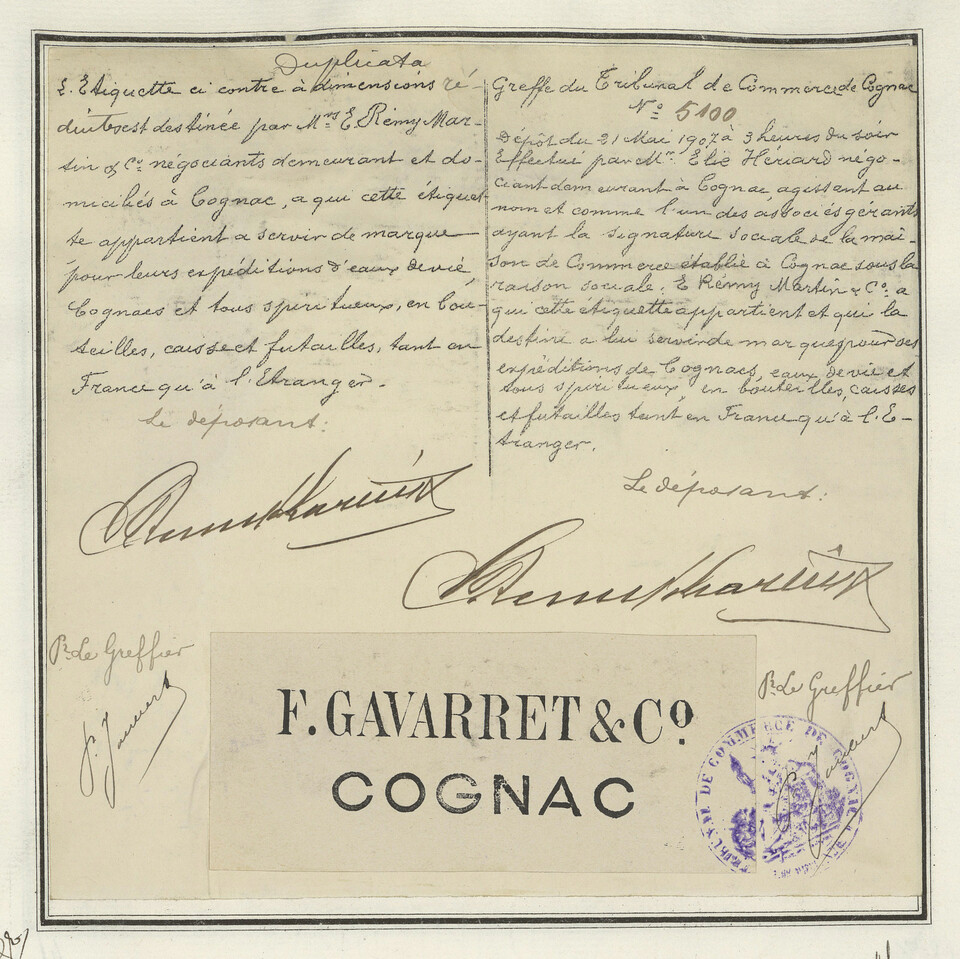 Duplicata
L'Etiquette ci contre à dimensions ré-
duites est destinée par Mrs E. Rémy Mar-
tin & Cº négociants demeurant et do-
miciliés à Cognac, a qui cette étiquet-
te appartient a servir de marque
pour leurs expéditions d'eaux de vie
Cognacs et tous spiritueux, en bou-
teilles, caisses et futailles, tant en
France qu'à l'Etranger.
Le déposant:
Greffe du Tribunal de Commerce de Cognac
Nº 5100
Dépôt du 21 Mai 1907 à 3 heures du soir
Effectué par Mr Elie Hériard négo-
ciant demeurant à Cognac agissant au
nom et comme l'un des associés gérants
ayant la signature sociale de la mai-
son de Commerce établie à Cognac sous la
raison sociale: E Rémy Martin & Cº. a
qui cette étiquette appartient et qui la
destine a lui servir de marque pour ses
expéditions de Cognacs, eaux de vie et
tous spiritueux, en bouteilles, caisses
et futailles tant en France qu'à l'E-
tranger.
Le déposant:
Pr Le Greffier
F. GAVARRET & Cº
COGNAC
Pr Le Greffier
TRIBUNAL DE COMMERCE DE COGNAC